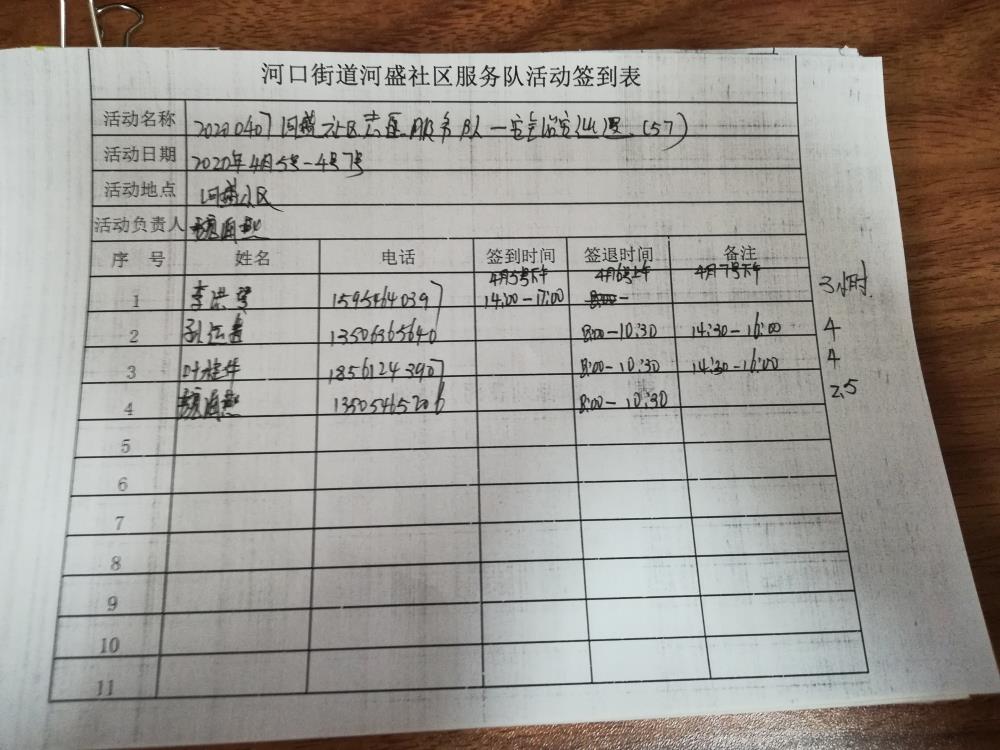 河口街道河盛社区服务队活动签到表
活动名称 20200407河盛社区志愿服务队一 (57)
活动日期 2020年4月5号-4号7号
活动地点 河盛社区
活动负责人
序 号 姓名 电话 签到时间 签退时间 备注
4月5号下午 4月6号上午 4月7号下午
1 李洪 15954640397 14:00-17:00 3小时.
2 13506365640 8:00-10:30 14:30-16:00 4
3 叶桂华 18561243907 8:00-10:30 14:30-16:00 4
4 13505465206 8:00-10:30 2.5
5
6
7
8
9
10
11